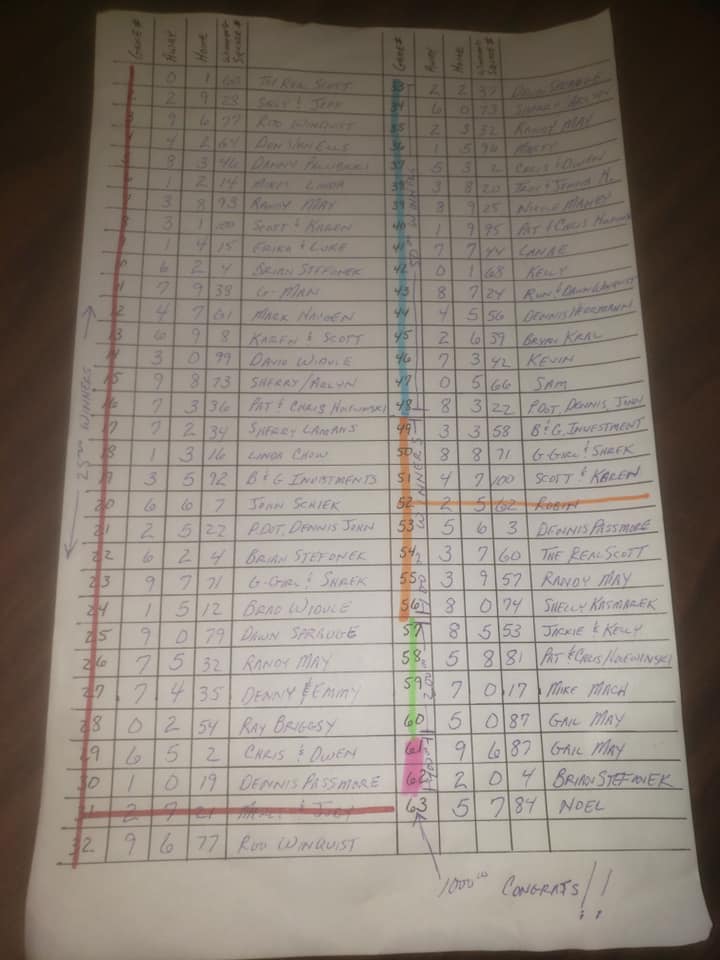 GAME # AWAY HOME WINNER'S SQUARE #
0 1 60 THE REAL SCOTT
2 9 28
9 6 77 ROD WINQUIST
4 2 64 DON VAN ELLS
8 3 46 DANNY
1 2 14 LINDA
3 8 93 RANDY MAY
3 1 100 SCOTT & KAREN
1 4 15 ERIKA & LUKE
6 2 4 BRIAN STEFONEK
7 9 38 G-MAN
12 4 7 61 MARK HAYDEN
13 6 9 8 KAREN & SCOTT
14 3 0 99 DAVID WIDULE
15 9 8 73 SHERRY/ARLYN
16 7 3 36 PAT & CHRIS HOLEWINSKI
17 7 2 34 SHERRY
18 1 3 16 LINDA CHOW
19 3 5 92 B & G INVESTMENTS
20 6 6 7 JOHN SCHIEK
21 2 5 22 P.DOT, DENNIS JOHN
22 6 2 4 BRIAN STEFONEK
23 9 7 71 G-GIRL & SHREK
24 1 5 12 BRAD WIDULE
25 9 0 79 DAWN SPRAUGE
26 7 5 32 RANDY MAY
27 7 4 35 DENNY & EMMY
28 0 2 54 RAY BRIGGSY
29 6 5 2 CHRIS & OWEN
30 1 0 19 DENNIS PASSMORE
31 2 7 21 & JUDY
32 9 6 77 ROD WINQUIST
25.00 WINNERS
GAME # AWAY HOME WINNER'S SQUARE #
33 2 2 37 DAWN SPRAUGE
34 6 0 73 SHERRY ARLYN
35 2 3 32 RANDY MAY
36 1 5 96
37 5 3 2 CHRIS & OWEN
38 3 8 20 & JENNA H.
39 8 9 25 NICOLE MANEY
40 1 9 95 PAT & CHRIS
41 7 7 44 LANAE
42 0 1 68 KELLY
43 8 7 24 RON & DAWN WINQUIST
44 4 5 56 DENNIS HERRMANN
45 2 6 39 BRYAN KRAL
46 7 3 42 KEVIN
47 0 5 66 SAM
48 8 3 22 P.DOT, DENNIS, JOHN
49 3 3 58 B & G INVESTMENT
50 8 8 71 G-GIRL & SHREK
51 4 7 100 SCOTT & KAREN
52 2 5 62 ROBIN
53 5 6 3 DENNIS PASSMORE
54 3 7 60 THE REAL SCOTT
55 3 9 57 RANDY MAY
56 8 0 74 SHELLY KASMAREK
57 8 5 53 JACKIE & KELLY
58 5 8 81 PAT & CHRIS/HOLEWINSKI
59 7 0 17 MIKE MACH
60 5 0 87 GAIL MAY
61 9 6 87 GAIL MAY
62 2 0 4 BRIAN STEFONEK
63 5 7 84 NOEL
50.00 WINNERS
WINNERS
1000.00 CONGRATS!!